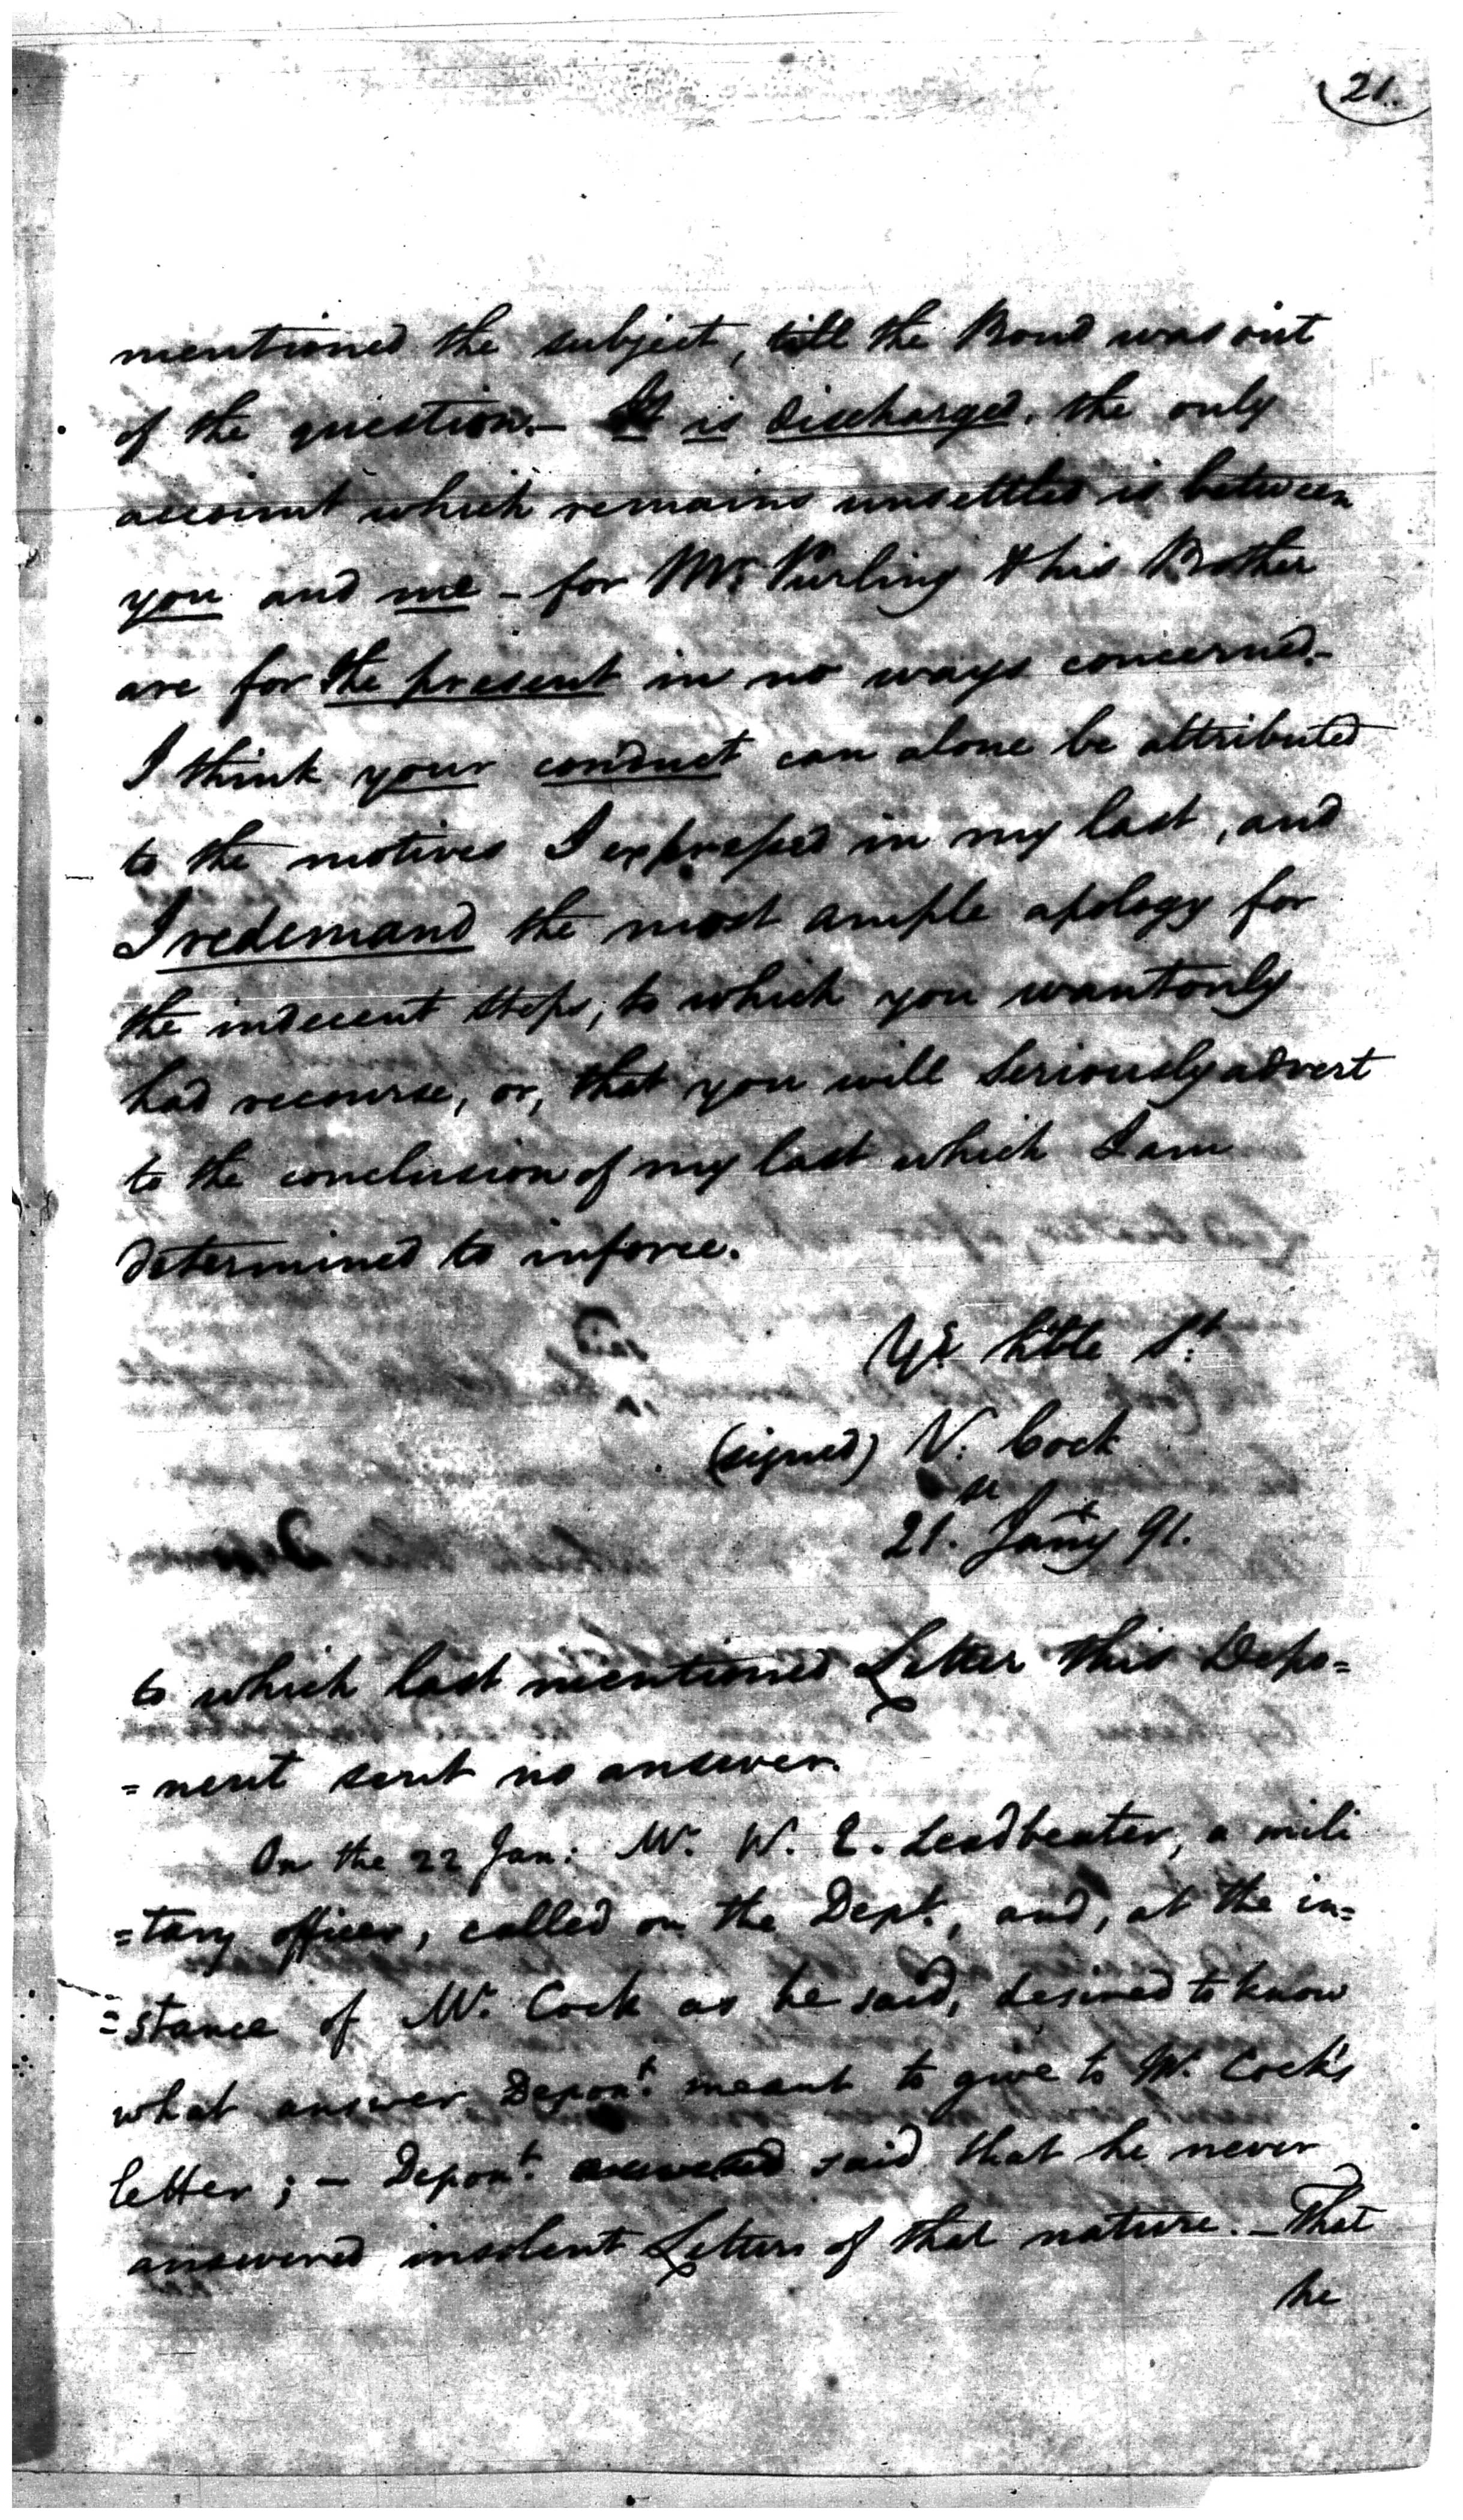 21.
mentioned the subject, till the Bond was out
of the question.- It is discharged. the only
account which remains unsettled is between
you and me - for Mr. Purling & his Brother
are for the present in no ways concerned.-
I think your conduct can alone be attributed
to the motives I expressed in my last, and
I redemand the most ample apology for
the indecent steps, to which you wantonly
had recourse, or, that you will seriously advert
to the conclusion of my last which I am
determined to inforce.
Yr. hble St.
(signed) N. Cock
21.st Jany 91.
to which last mentioned Letter this Depo=
=nent sent no answer.
On the 22 Jan: Mr. W. E. Leadbeater, a mili
=tary officer, called on the Dept., and, at the in=
=stance of Mr. Cock as he said, desired to know
what answer Depont. meant to give to Mr. Cock's
letter; - Depont. answered said that he never
answered insolent Letters of that nature. - That
he